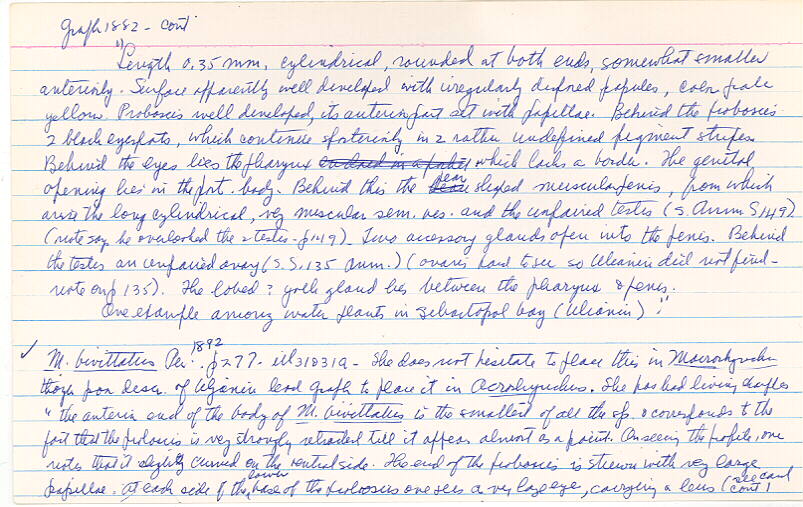 Graff 1882 - cont
"Length 0.35 mm, cylindrical, rounded at both ends, somewhat smaller
anteriorly. Surface apparently well developed with irregularly defined papules, color pale
yellow. Proboscis well developed, its anterior part set with papillae. Behind the proboscis
2 black eyespots, which continue posteriorly in 2 rather undefined pigment stripes.
Behind the eyes lies the pharynx which lacks a border. The genital
opening lies in the post. body. Behind this the pear shaped muscular penis, from which
arise the long cylindrical, very muscular sem. ves. and the unpaired testes (s. Anm S 149)
(note says he overlooked the 2 testes - p 149). Two accessory glands open into the penis. Behind
the testes an unpaired ovary (s. S. 135 Anm.) (ovaries hard to see so Ulianin did not find -
note on p 135). The lobed ? yolk gland lies between the pharynx & penis.
One example among water plants in Sebastopol bay (Ulianin)"
✓ M. bivittatus Per. 1892 p 277. - She does not hesitate to place this in Macrorhynchus
though poor descr. of Uljanin lead Graff to place it in Acrorhynchus. She has had living
" the anterior end of the body of M. bivittatus is the smallest of all the sp. & corresponds to the
fact that the proboscis is very strongly retracted till it appears almost as a point. On seeing the profile, one
notes that it slightly curved on the ventral side. The end of the proboscis is strewn with very large
papillae. At each side of the lower base of the proboscis one sees a very large eye, carrying a lens (see card
cont)